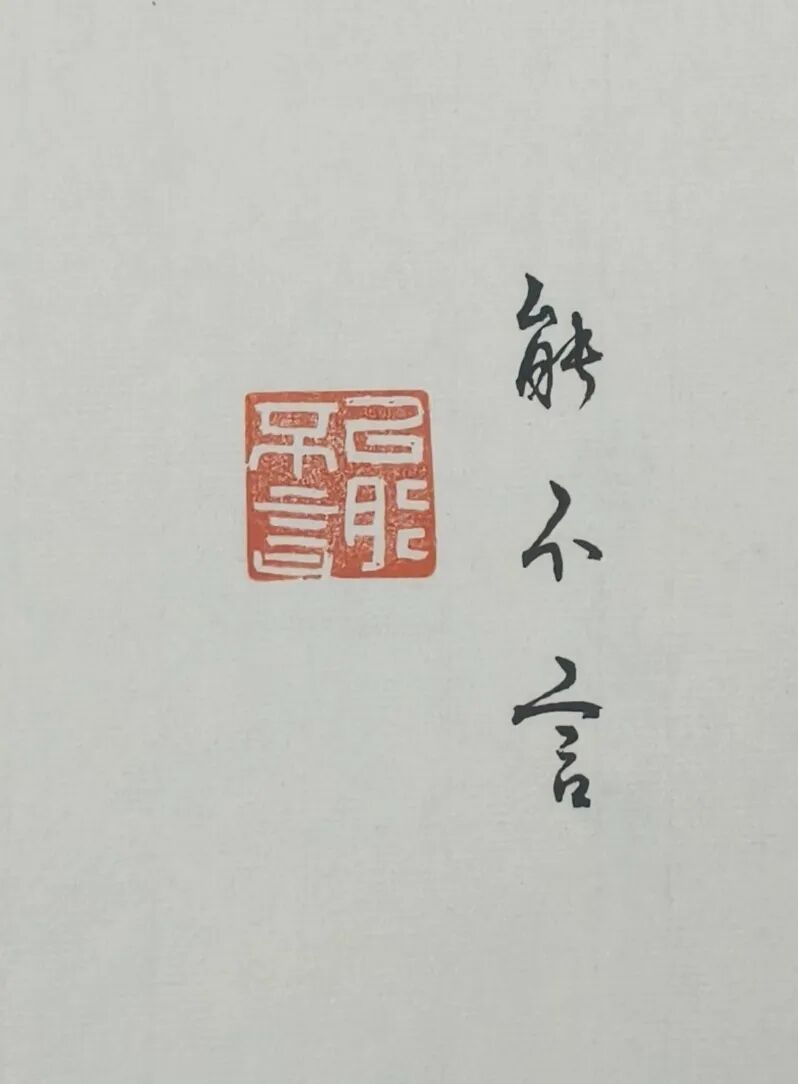 能不言
能不言